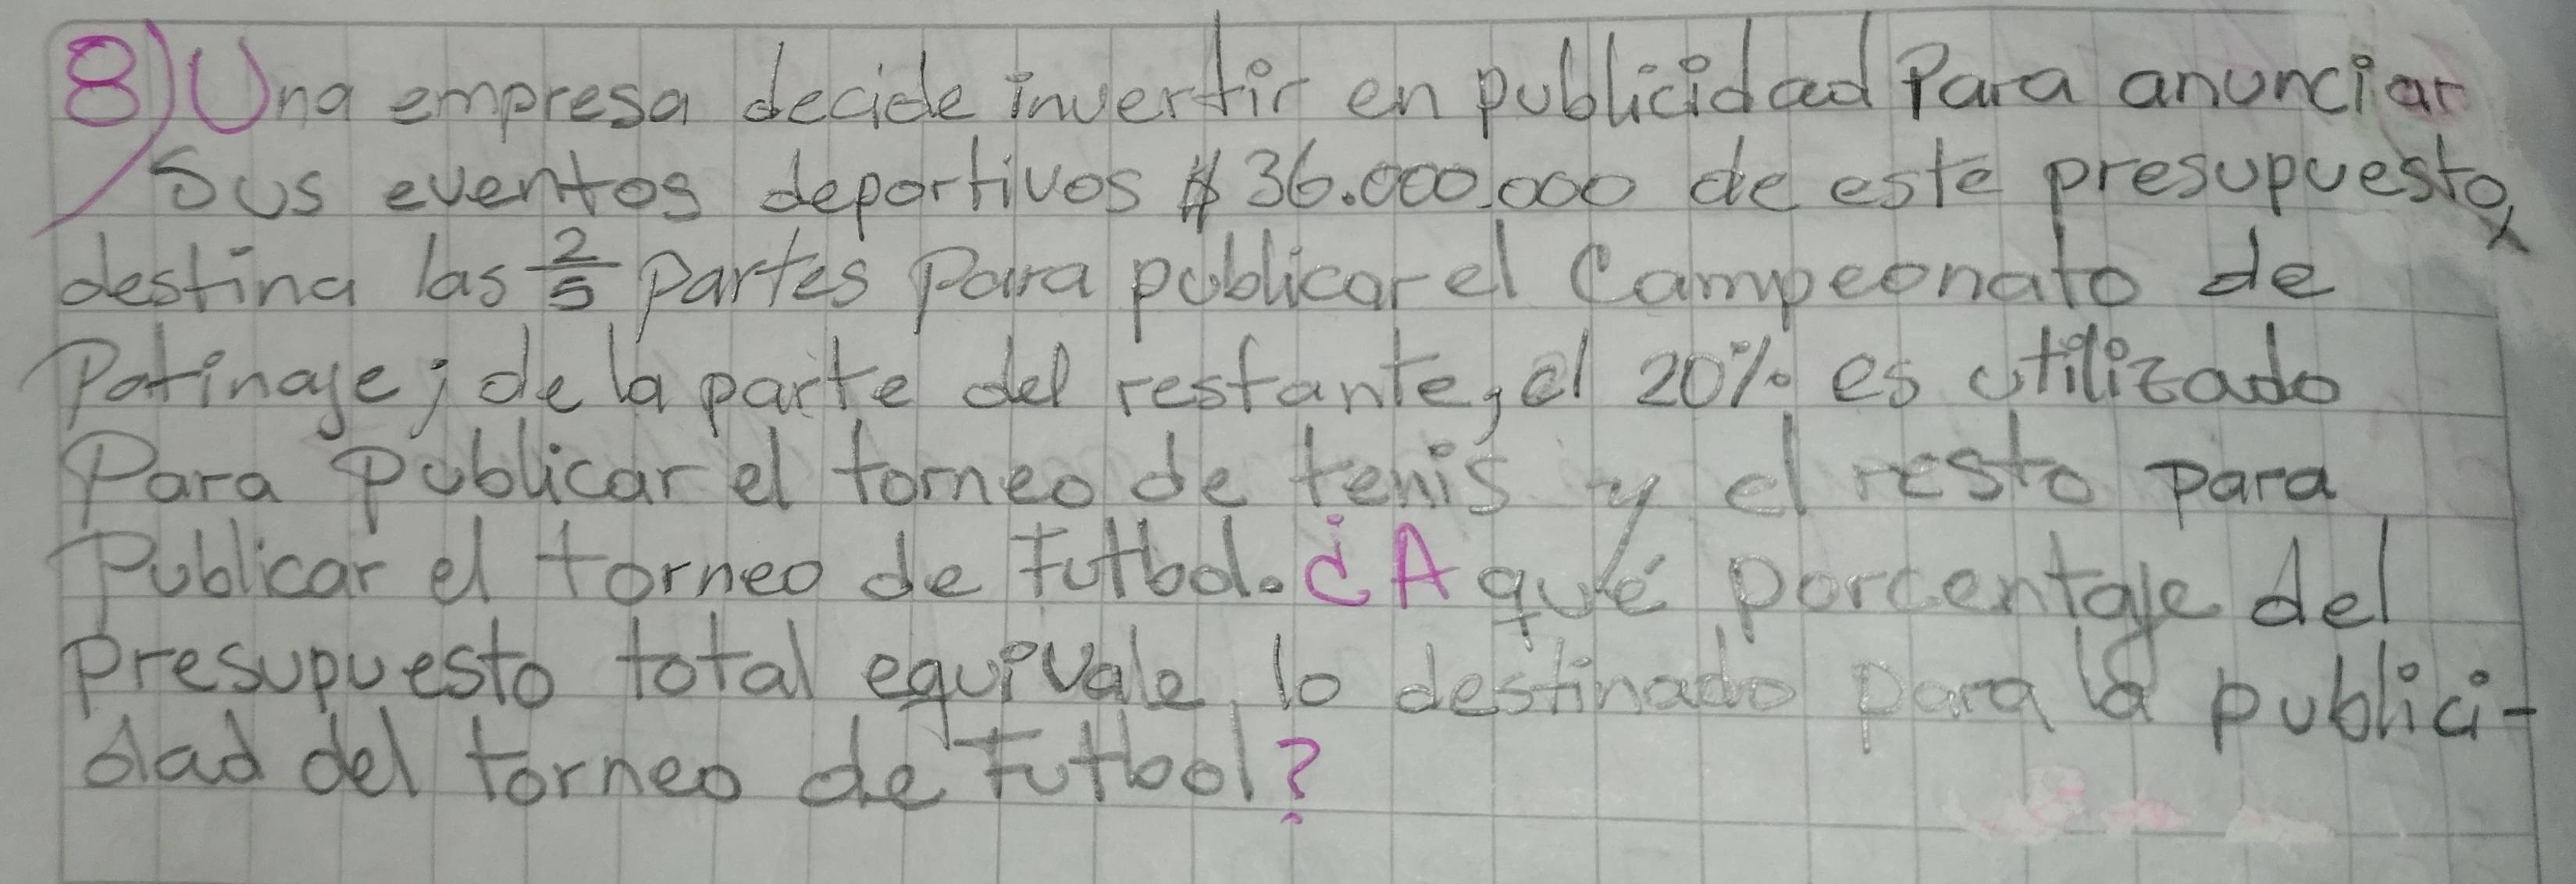 8) Una empresa decide invertir en publicidad Para anunciar
Sus eventos deportivos $36.000.000 de este presupuesto,
destina las 2/5 partes para publicar el Campeonato de
Patinaje; de la parte del restante, el 20% es utilizado
Para publicar el torneo de tenis y el resto para
Publicar el torneo de Futbol. ¿A qué porcentaje del
presupuesto total equivale lo destinado para la publici-
dad del torneo de Futbol?